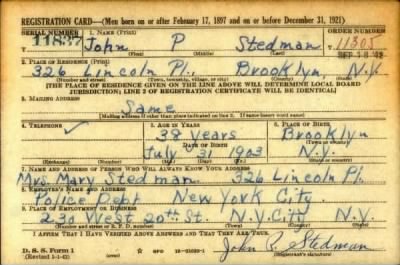 REGISTRATION CARD—(Men born on or after February 17, 1897 and on or before December 31, 1921)
SERIAL NUMBER 1. NAME (Print) ORDER NUMBER
11837 John P Stedman 11305
(First) (Middle) (Last)
2. PLACE OF RESIDENCE (Print)
326 Lincoln Pl. Brooklyn N.Y.
(Number and street) (Town, township, village, or city) (County) (State)
[THE PLACE OF RESIDENCE GIVEN ON THE LINE ABOVE WILL DETERMINE LOCAL BOARD
JURISDICTION; LINE 2 OF REGISTRATION CERTIFICATE WILL BE IDENTICAL]
3. MAILING ADDRESS
Same
[Mailing address if other than place indicated on line 2. If same insert word same]
4. TELEPHONE 5. AGE IN YEARS 6. PLACE OF BIRTH
38 years Brooklyn
DATE OF BIRTH (Town or county)
July 31 1903 N.Y.
(Exchange) (Number) (Mo.) (Day) (Yr.) (State or country)
7. NAME AND ADDRESS OF PERSON WHO WILL ALWAYS KNOW YOUR ADDRESS
Mrs. Mary Stedman 326 Lincoln Pl.
8. EMPLOYER'S NAME AND ADDRESS
Police Dept New York City
9. PLACE OF EMPLOYMENT OR BUSINESS
230 West 20th St. N.Y. City N.Y.
(Number and street or R. F. D. number) (Town) (County) (State)
I AFFIRM THAT I HAVE VERIFIED ABOVE ANSWERS AND THAT THEY ARE TRUE.
D. S. S. Form 1
(Revised 1-1-42) (over) John P. Stedman
(Registrant's signature)